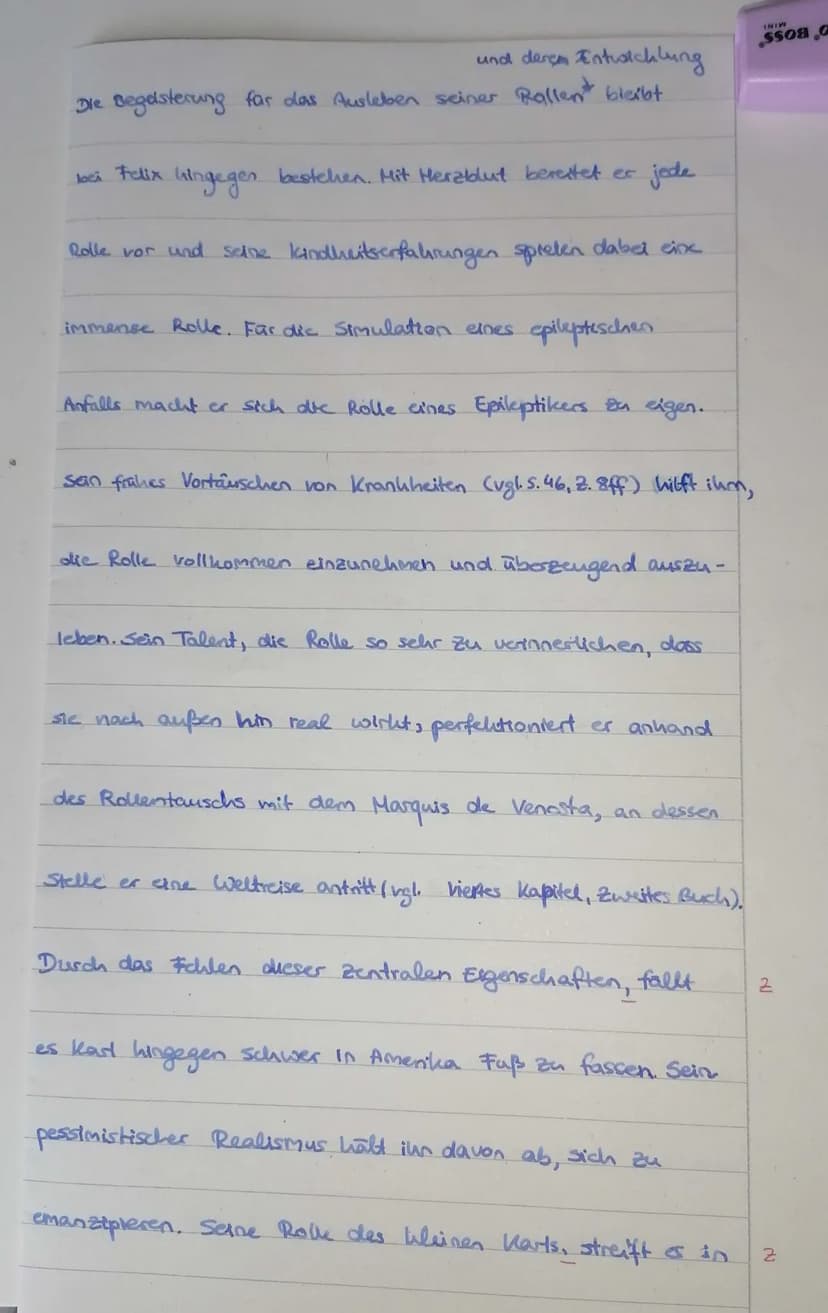 BOSS
MINI
und deren Entwicklung
Die Begeisterung für das Ausleben seiner Rollen* bleibt
bei Felix hingegen bestehen. Mit Herzblut bereitet er jede
Rolle vor und seine Kindheitserfahrungen spielen dabei eine
immense Rolle. Für die Simulation eines epileptischen
Anfalls macht er sich die Rolle eines Epileptikers zu eigen.
Sein frühes Vortäuschen von Krankheiten (vgl. S. 46, Z. 8ff) hilft ihm,
die Rolle vollkommen einzunehmen und überzeugend auszu-
leben. Sein Talent, die Rolle so sehr zu verinnerlichen, dass
sie nach außen hin real wirkt, perfektioniert er anhand
des Rollentauschs mit dem Marquis de Venosta, an dessen
Stelle er eine Weltreise antritt (vgl. Viertes Kapitel, Zweites Buch).
Durch das Fehlen dieser zentralen Eigenschaften, fällt Z
es Karl hingegen schwer in Amerika Fuß zu fassen. Sein
pessimistischer Realismus hält ihn davon ab, sich zu
emanzipieren. Seine Rolle des kleinen Karls, streift er in Z